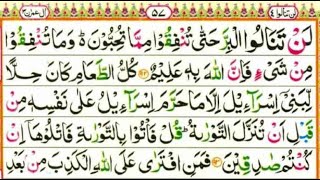 لن تنالوا ٤ ۵۷ اٰل عمرٰن ٣
لَنْ تَنَالُوا الْبِرَّ حَتّٰى تُنْفِقُوْا مِمَّا تُحِبُّوْنَ ؕ وَمَا تُنْفِقُوْا
مِنْ شَیْءٍ فَاِنَّ اللّٰهَ بِهٖ عَلِیْمٌ ﴿۹۲﴾ كُلُّ الطَّعَامِ كَانَ حِلًّا
لِّبَنِیْۤ اِسْرَآءِیْلَ اِلَّا مَا حَرَّمَ اِسْرَآءِیْلُ عَلٰى نَفْسِهٖ مِنْ
قَبْلِ اَنْ تُنَزَّلَ التَّوْرٰىةُ ؕ قُلْ فَاْتُوْا بِالتَّوْرٰىةِ فَاتْلُوْهَاۤ اِنْ
كُنْتُمْ صٰدِقِیْنَ ﴿۹۳﴾ فَمَنِ افْتَرٰى عَلَى اللّٰهِ الْكَذِبَ مِنْۢ بَعْدِ